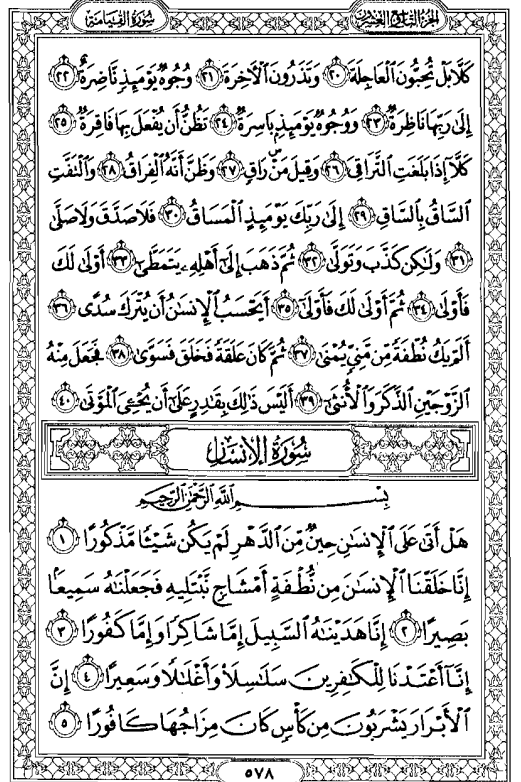 سُورَةُ القِيَامَةِ
الجُزْءُ التَّاسِعُ وَالعِشْرُونَ
كَلَّا بَلْ تُحِبُّونَ ٱلْعَاجِلَةَ ٢٠ وَتَذَرُونَ ٱلْأَخِرَةَ ٢١ وُجُوهٌ يَوْمَئِذٍ نَّاضِرَةٌ ٢٢
إِلَىٰ رَبِّهَا نَاظِرَةٌ ٢٣ وَوُجُوهٌ يَوْمَئِذٍ بَاسِرَةٌ ٢٤ تَظُنُّ أَن يُفْعَلَ بِهَا فَاقِرَةٌ ٢٥
كَلَّا إِذَا بَلَغَتِ ٱلتَّرَاقِيَ ٢٦ وَقِيلَ مَنْۜ رَاقٍ ٢٧ وَظَنَّ أَنَّهُ ٱلْفِرَاقُ ٢٨ وَٱلْتَفَّتِ
ٱلسَّاقُ بِٱلسَّاقِ ٢٩ إِلَىٰ رَبِّكَ يَوْمَئِذٍ ٱلْمَسَاقُ ٣٠ فَلَا صَدَّقَ وَلَا صَلَّىٰ
٣١ وَلَٰكِن كَذَّبَ وَتَوَلَّىٰ ٣٢ ثُمَّ ذَهَبَ إِلَىٰ أَهْلِهِۦ يَتَمَطَّىٰ ٣٣ أَوْلَىٰ لَكَ
فَأَوْلَىٰ ٣٤ ثُمَّ أَوْلَىٰ لَكَ فَأَوْلَىٰ ٣٥ أَيَحْسَبُ ٱلْإِنسَٰنُ أَن يُتْرَكَ سُدًى ٣٦
أَلَمْ يَكُ نُطْفَةً مِّن مَّنِيٍّ يُمْنَىٰ ٣٧ ثُمَّ كَانَ عَلَقَةً فَخَلَقَ فَسَوَّىٰ ٣٨ فَجَعَلَ مِنْهُ
ٱلزَّوْجَيْنِ ٱلذَّكَرَ وَٱلْأُنثَىٰ ٣٩ أَلَيْسَ ذَٰلِكَ بِقَٰدِرٍ عَلَىٰ أَن يُحْـِۧىَ ٱلْمَوْتَىٰ ٤٠
سُورَةُ الإِنسَانِ
بِسْمِ ٱللَّهِ ٱلرَّحْمَٰنِ ٱلرَّحِيمِ
هَلْ أَتَىٰ عَلَى ٱلْإِنسَٰنِ حِينٌ مِّنَ ٱلدَّهْرِ لَمْ يَكُن شَيْـًٔا مَّذْكُورًا ١
إِنَّا خَلَقْنَا ٱلْإِنسَٰنَ مِن نُّطْفَةٍ أَمْشَاجٍ نَّبْتَلِيهِ فَجَعَلْنَٰهُ سَمِيعًۢا
بَصِيرًا ٢ إِنَّا هَدَيْنَٰهُ ٱلسَّبِيلَ إِمَّا شَاكِرًا وَإِمَّا كَفُورًا ٣
إِنَّآ أَعْتَدْنَا لِلْكَٰفِرِينَ سَلَٰسِلَا۟ وَأَغْلَٰلًا وَسَعِيرًا ٤ إِنَّ
ٱلْأَبْرَارَ يَشْرَبُونَ مِن كَأْسٍ كَانَ مِزَاجُهَا كَافُورًا ٥
٥٧٨